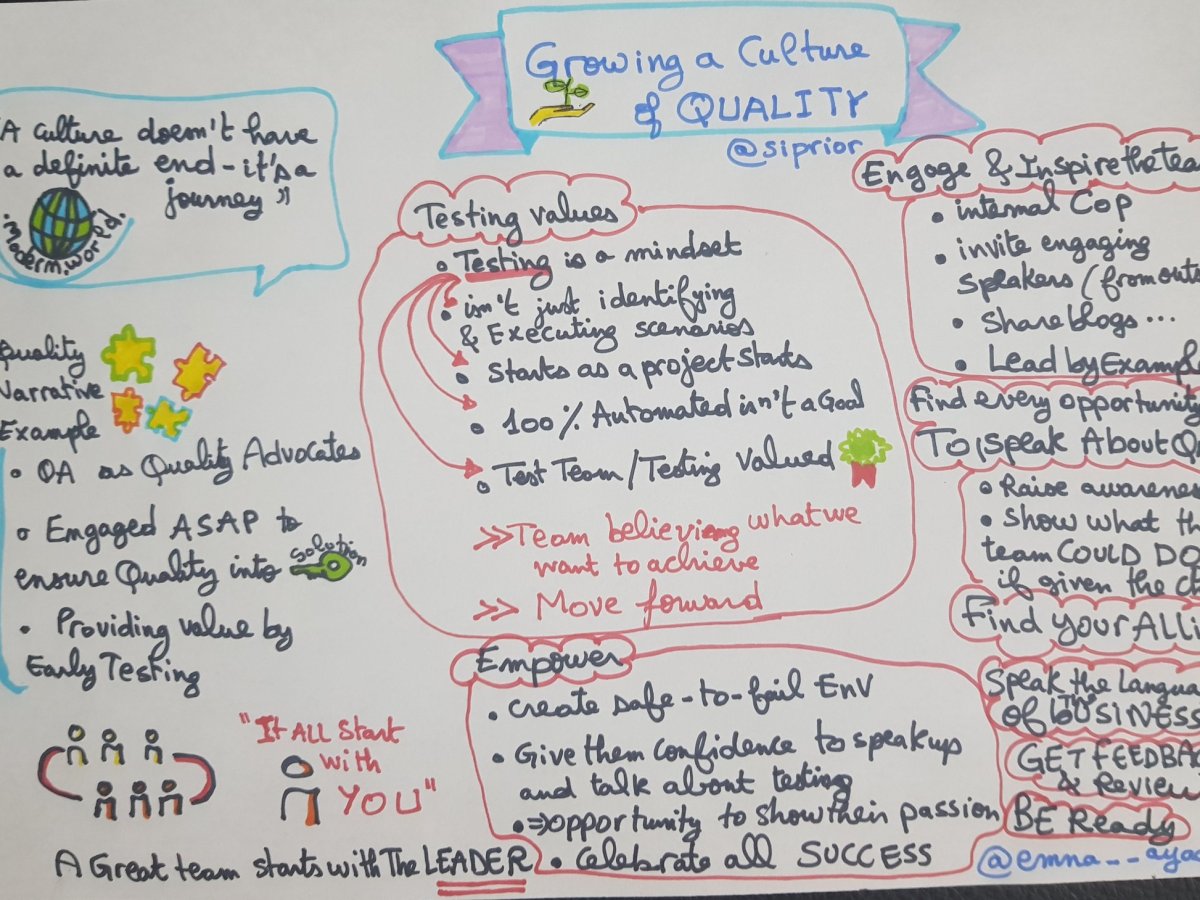 Growing a Culture
of QUALITY
@siprior
"A culture doesn't have
a definite end - it's a
journey"
Quality
Narrative
Example
• QA as Quality Advocates
• Engaged ASAP to
ensure Quality into
Solution
• Providing value by
Early Testing
"It ALL Start
with
YOU"
A Great team starts with The LEADER
Testing values
• Testing is a mindset
• isn't just identifying
& Executing scenarios
• Starts as a project Starts
• 100% Automated isn't a Goal
• Test Team/Testing Valued
>> Team believing what we
want to achieve
>> Move forward
Empower
• Create safe-to-fail Env
• Give them confidence to speak up
and talk about testing
• => opportunity to show their passion
• Celebrate all SUCCESS
Engage & Inspire the tea
• internal Cop
• invite engaging
Speakers (from outs
• Share blogs ...
• Lead by Example
Find every opportunity
To Speak About QA
• Raise awarenes
• Show what th
team COULD DO
if given the c
Find your ALLI
Speak the Langua
of the BUSINESS
GET FEEDBA
& Review
BE Ready
@emna__aya